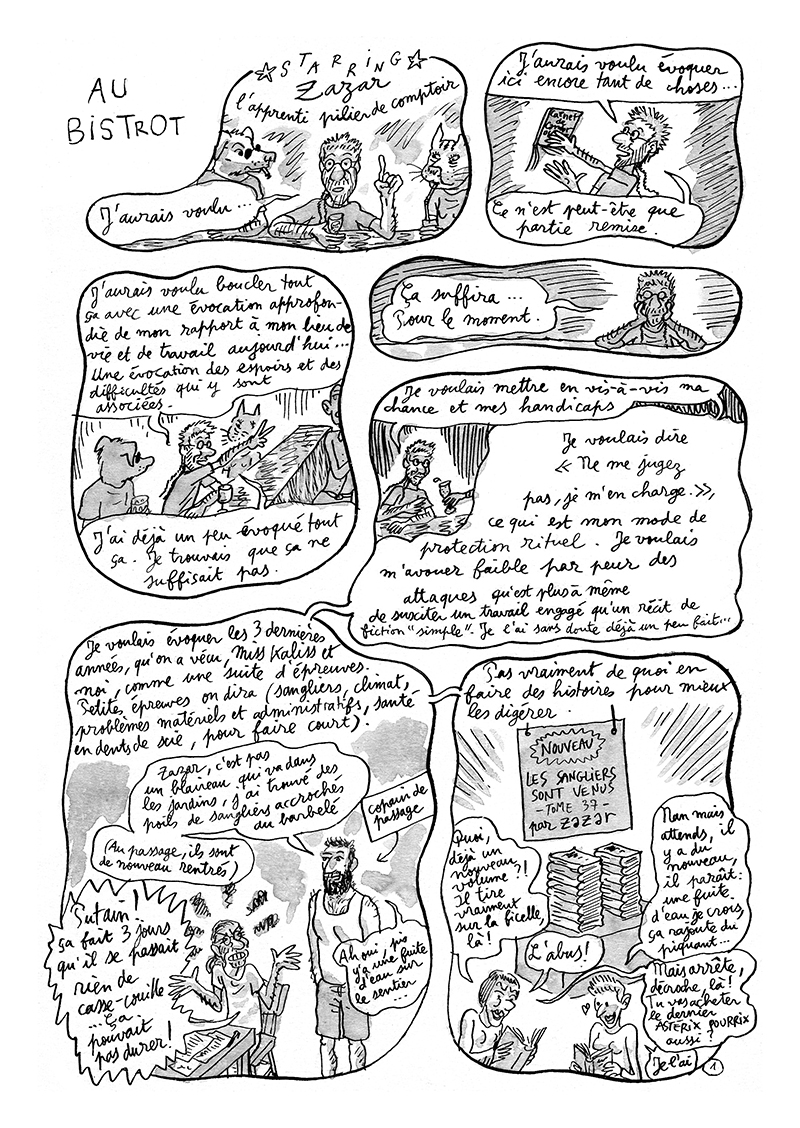 AU
BISTROT
☆STARRING☆
Zazar
l'apprenti pilier de comptoir
J'aurais voulu...
J'aurais voulu évoquer
ici encore tant de choses...
Carnet
de
Ce n'est peut-être que
partie remise.
J'aurais voulu boucler tout
ça avec une évocation approfon-
die de mon rapport à mon lieu de
vie et de travail aujourd'hui...
Une évocation des espoirs et des
difficultés qui y sont
associées.
J'ai déjà un peu évoqué tout
ça. Je trouvais que ça ne
suffisait pas.
Ça suffira...
Pour le moment.
Je voulais mettre en vis-à-vis ma
chance et mes handicaps
Je voulais dire
« Ne me jugez
pas, je m'en charge. »,
ce qui est mon mode de
protection rituel. Je voulais
m'avouer faible par peur des
attaques qu'est plus à même
de susciter un travail engagé qu'un récit de
fiction "simple". Je l'ai sans doute déjà un peu fait...
Je voulais évoquer les 3 dernières
années, qu'on a vécu, Miss Kaliss et
moi, comme une suite d'épreuves.
Petites épreuves on dira (sangliers, climat,
problèmes matériels et administratifs, santé
en dents de scie, pour faire court).
Zazar, c'est pas
un blaireau qui va dans
les jardins, j'ai trouvé des
poils de sangliers accrochés
du barbelé
copain de
passage
(Au passage, ils sont
de nouveau rentrés)
Putain!
ça fait 3 jours
qu'il se passait
rien de
casse-couille
...Ça
pouvait
pas durer!
Ah oui, pis
y'a une fuite
d'eau sur
le sentier
...
Pas vraiment de quoi en
faire des histoires pour mieux
les digérer.
NOUVEAU
LES SANGLIERS
SONT VENUS
- TOME 37 -
par Zazar
Quoi,
déjà un
nouveau
volume ?!
Il tire
vraiment
sur la ficelle,
là!
L'abus!
Nan mais
attends, il
y a du
nouveau,
il paraît:
une fuite
d'eau je crois,
ça rajoute du
piquant...
Mais arrête,
décroche, là!
Tu vas acheter
le dernier
ASTÉRIX POURRIX
aussi ?
Je l'ai
1